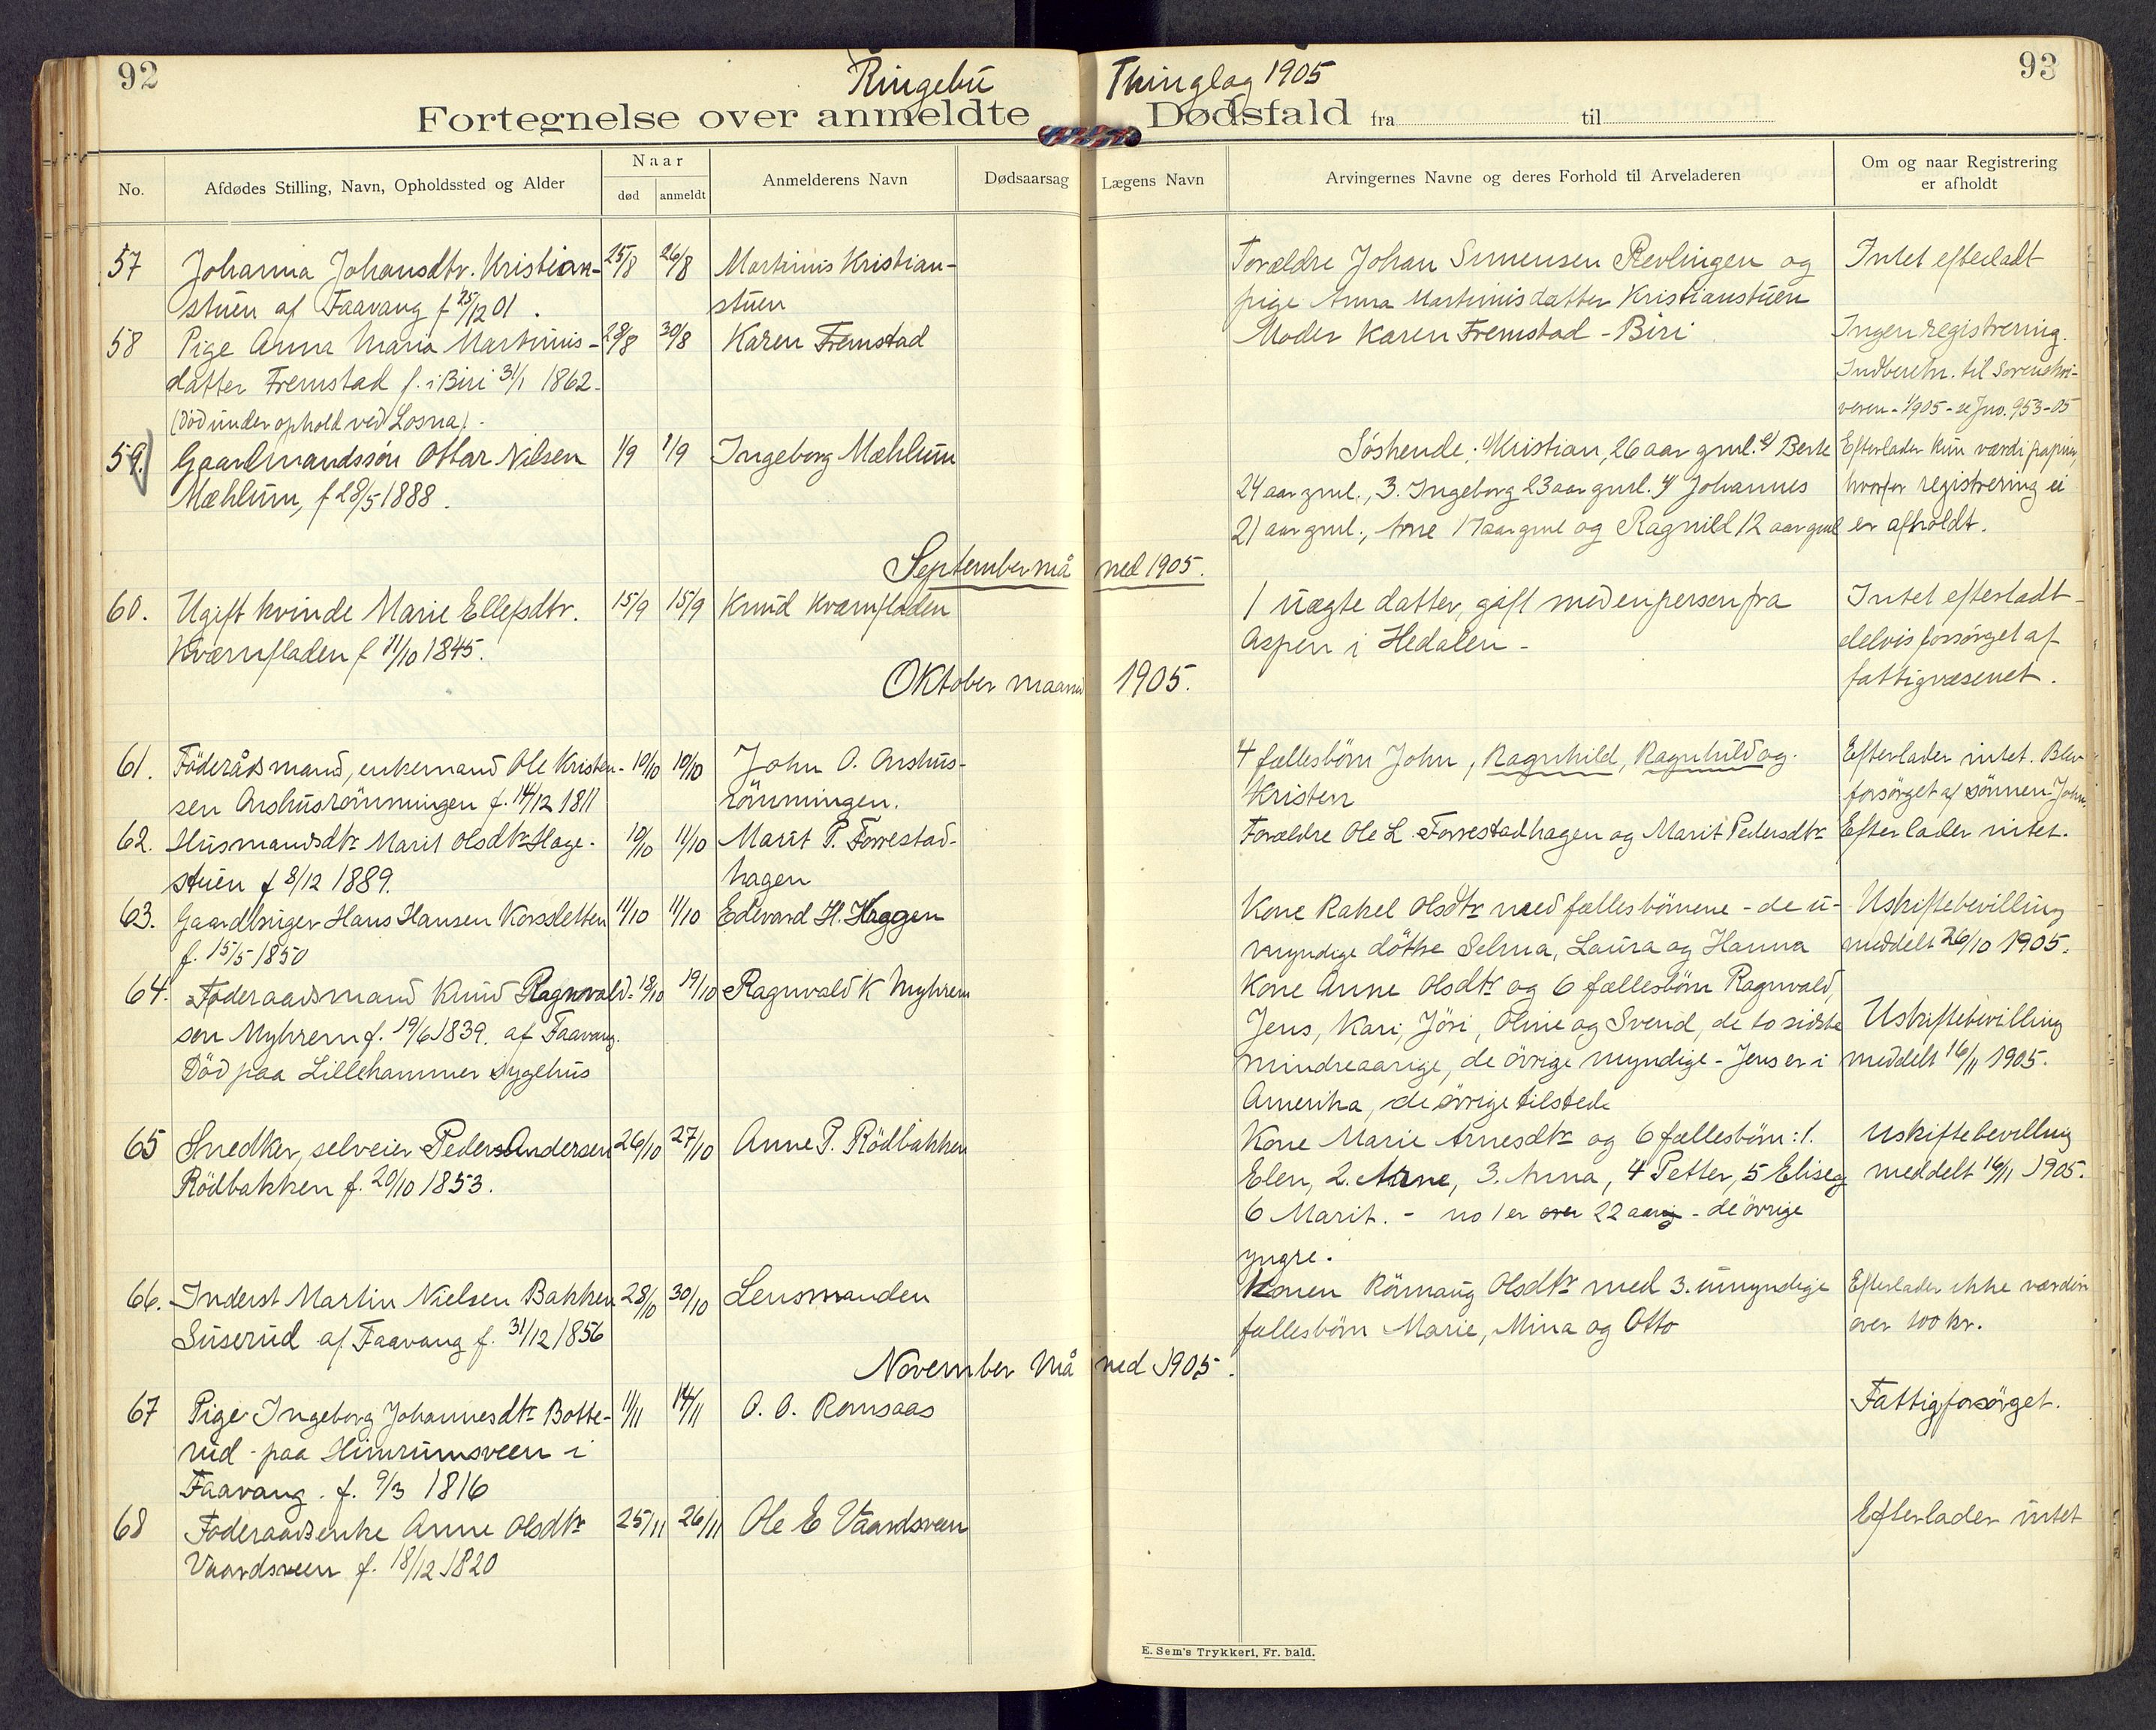 92
Ringebu Thinglag 1905
93
Fortegnelse over anmeldte Dødsfald fra til
No.
Afdødes Stilling, Navn, Opholdssted og Alder
Naar
død
anmeldt
Anmelderens Navn
Dødsaarsag
Lægens Navn
Arvingernes Navne og deres Forhold til Arveladeren
Om og naar Registrering
er afholdt
57 Johanna Johansdtr. Kristian- 25/8 26/8 Martinus Kristian- Forældre Johan Simensen Revlingen og Intet efterladt
stuen af Faavang f 25/12 01. stuen pige Anna Martinusdatter Kristianstuen
58 Pige Anna Maria Martinus- 28/8 30/8 Karen Fremstad Moder Karen Fremstad - Biri Ingen registrering.
datter Fremstad f. i Biri 31/1 1862. Indberetn. til Sorenskri-
(Død under ophold ved Losna). veren - 1/9 05 - se Jno. 953-05
59.) Gaardmandssøn Ottar Nilsen 1/9 1/9 Ingeborg Mæhlum Søskende: 1/ Kristian, 26 aar gml. 2/ Berte Efterlader kun værdipapirer,
Mæhlum, f 28/5 1888. 24 aar gml., 3. Ingeborg 23 aar gml. 4/ Johannes hvorfor registrering ei
21 aar gml., Arne 17 aar gml og Ragnild 12 aar gml er afholdt.
September måned 1905.
60. Ugift kvinde Marie Ellefsdtr. 15/9 15/9 Knud Kværnfladen 1 uægte datter, gift med en person fra Intet efterladt -
Kværnfladen f 11/10 1845. Aspen i Hedalen - delvis forsörget af
fattigvæsenet.
Oktober maaned 1905.
61. Föderådsmand, enkemand Ole Kristen- 10/10 10/10 John O. Arshus- 4 fællesbörn John, Ragnhild, Ragnhild og Efterlader intet. Blev
sen Arshusrönningen f. 14/12 1811 rönningen. Kristen forsörget af sönnen John.
62. Husmandsdtr Marit Olsdtr Hage- 10/10 11/10 Marit P. Forrestad- Forældre Ole L. Forrestadhagen og Marit Pedersdtr Efterlader intet.
stuen f 8/12 1889. hagen
63. Gaardbruger Hans Hansen Korsletten 11/10 11/10 Edevard H. Haggen Kone Rakel Olsdtr med fællesbörnene - de u- Uskiftebevilling
f. 15/5 1850 myndige döttre Selma, Laura og Hanna meddelt 26/10 1905.
64. Föderaadsmand Knud Ragnvald- 18/10 19/10 Ragnvald K Myhren Kone Anne Olsdtr og 6 fællesbörn Ragnvald,
sen Myhren f. 19/6 1839. af Faavang. Jens, Kari, Jöri, Oline og Svend, de to sidste Uskiftebevilling
Död paa Lillehammer sygehus mindreaarige, de övrige myndige - Jens er i meddelt 16/11 1905.
Amerika, de övrige tilstede
65 Snedker, selveier Peder Andersen 26/10 27/10 Anne P. Rödbakken Kone Marie Arnesdtr og 6 fællesbörn: 1. Uskiftebevilling
Rödbakken f. 20/10 1853. Elen, 2. Arne, 3. Anna, 4 Petter, 5 Elise og meddelt 16/11 1905.
6 Marit. - no 1 er over 22 aarig - de övrige
yngre.
66. Inderst Martin Nielsen Bakken 28/10 30/10 Lensmanden Konen Rönnaug Olsdtr med 3. umyndige Efterlader ikke værdier
Suserud af Faavang f. 31/12 1856 fællesbörn Marie, Mina og Otto over 100 kr.
November måned 1905.
67 Pige Ingeborg Johannesdtr Botte- 11/11 14/11 O. O. Romsaas Fattigforsörget.
rud - paa Himrumsveen i
Faavang. f. 9/3 1816
68 Föderaadsenke Anne Olsdtr 25/11 26/11 Ole E Vaardsveen Efterlader intet
Vaardsveen f. 18/12 1820
E. Sem's Trykkeri, Fr. hald.